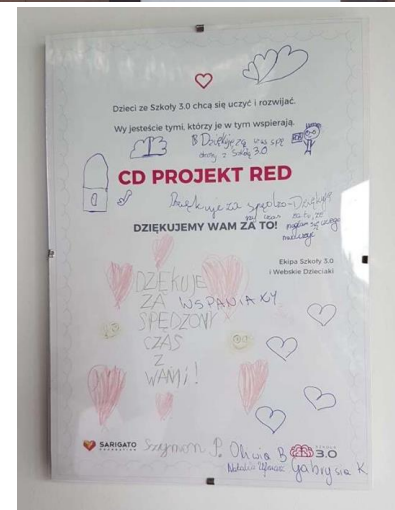 Dzieci ze Szkoły 3.0 chcą się uczyć i rozwijać.
Wy jesteście tymi, którzy je w tym wspierają.
Dziękuję za
z Szkołą 3.0
CD PROJEKT RED
Dziękuję za
czas
DZIĘKUJEMY WAM ZA TO!
Ekipa Szkoły 3.0
i Webskie Dzieciaki
DZIĘKUJE
ZA WSPANIAXY
SPĘDZONY
CZAS
Z
WAMI!
SARIGATO
Szymon P. Oliwia B
3.0
Natalia Gabrysia K